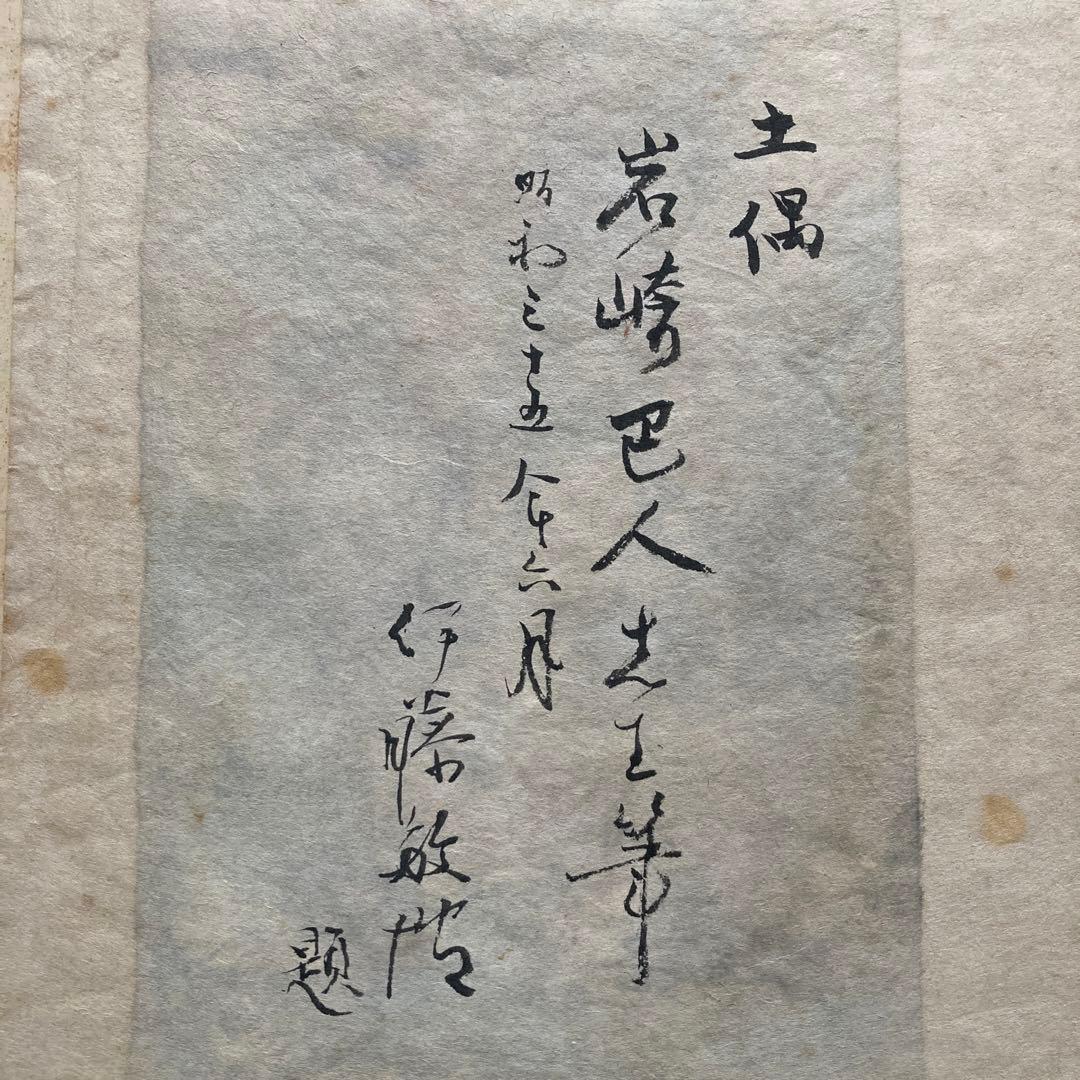 土偶
岩崎巴人先生筆
昭和三十五年六月
伊藤敏
題